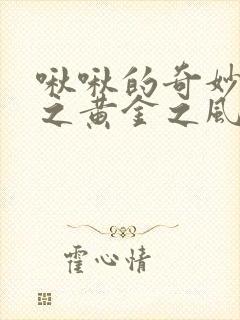 啾啾的奇妙
之黄金之风
霍心情